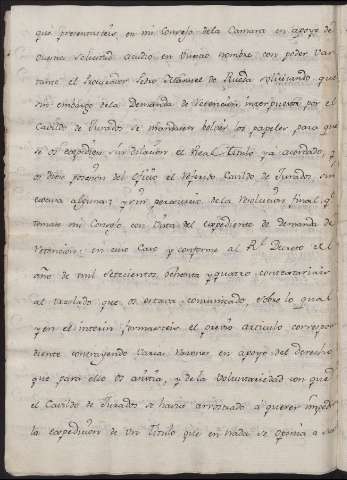 que presentasteis, en mi Consejo dela Camara en apoyo de
vuestra solicitud acudio en vuestro nombre con poder bas
tante el Procurador Pedro Manuel de Rueda solicitando que
sin embargo dela Demanda de Retencion interpuesta por el
Cavildo de Jurados se mandasen bolver los papeles para que
se os expidiese sin dilacion el Real Titulo ya acordado, y
os diese posesion del Oficio el referido Cavildo de Jurados, sin
escusa alguna, y sin perjuicio de la resolucion final que
tomase mi Consejo con vista del expediente de demanda de
retencion; en cuio caso y conforme al Rl. Decreto del
año de mil setecientos, ochenta y quatro, contextariais
al traslado que os estava comunicado, sobre lo qual
y en el interin formasteis el previo articulo correspon
diente contrayendo varias razones, en apoyo del derecho
que para ello os asistia, y de la voluntariedad con que
el Cavildo de Jurados se havia arrostrado à querer impedir
la expedicion de un Titulo que en nada se oponia a sus